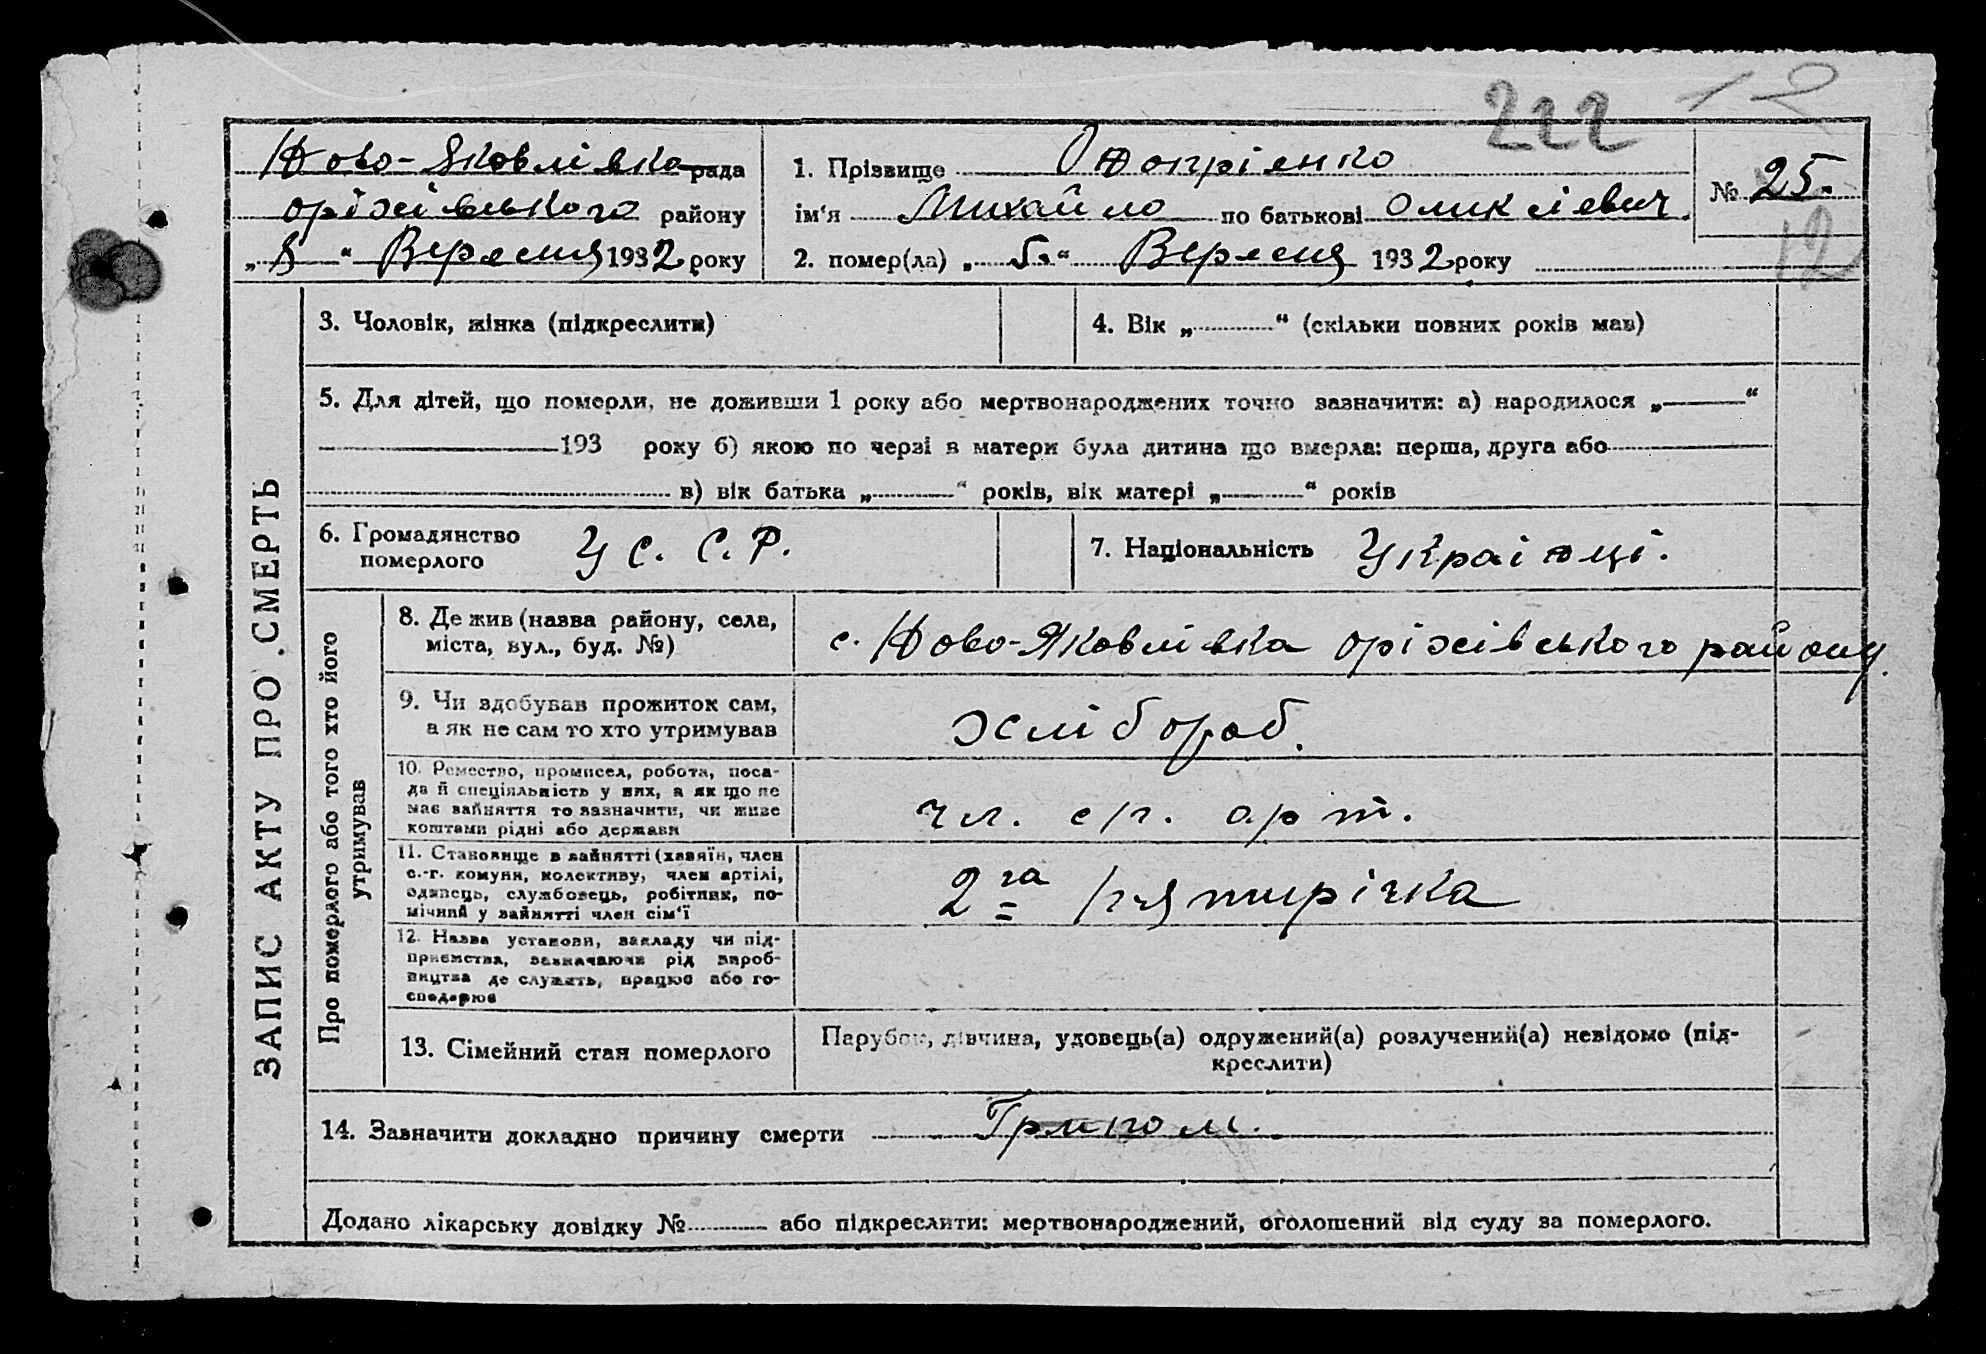 222 12
Ново-Яковлівка рада
оріхівського району
„ 8 “ Вересня 1932 року
1. Прізвище Онопрієнко
ім‘я Михайло по батькові Оликсієвич.
2. помер(ла) „ 5. “ Вересня 1932 року
№ 25.
12
ЗАПИС АКТУ ПРО СМЕРТЬ
3. Чоловік, жінка (підкреслити)
4. Вік „ “ (скільки повних років мав)
5. Для дітей, що померли, не доживши 1 року або мертвонароджених точно зазначити: а) народилося „ “
193 року б) якою по черзі в матери була дитина що вмерла: перша, друга або
в) вік батька „ “ років, вік матері „ “ років
6. Громадянство
померлого
У С. С. Р.
7. Національність Украінці.
Про померлого або того хто його
утримував
8. Де жив (назва району, села,
міста, вул., буд. №)
с. Ново-Яковлівка оріхівського району.
9. Чи здобував прожиток сам,
а як не сам то хто утримував
хлібороб.
10. Ремество, промисел, робота, поса-
да й спеціяльність у них, а як що не
має зайняття то зазначити, чи живе
коштами рідні або держави
чл. с/г. арт.
11. Становище в зайнятті (хазяїн, член
с.-г. комуни, колективу, член артілі,
одинець, службовець, робітник, по-
мічний у зайнятті член сім‘ї
2га п‘ятирічка
12. Назва установи, закладу чи під-
приємства, зазначаючи рід вироб-
ництва де служить, працює або го-
сподарює
13. Сімейний стан померлого
Парубок, дівчина, удовець(а) одружений(а) розлучений(а) невідомо (під-
креслити)
14. Зазначити докладно причину смерти
Додано лікарську довідку № або підкреслити: мертвонароджений, оголошений від суду за померлого.